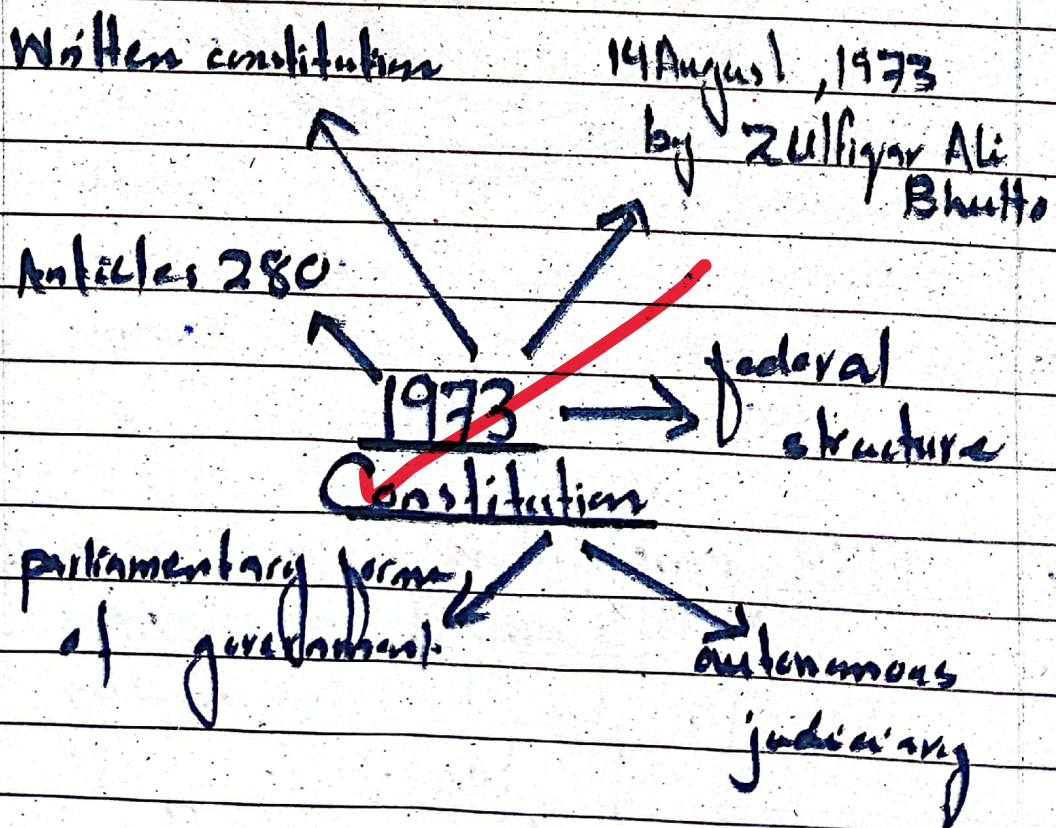 Written constitution
14 August, 1973
by Zulfiqar Ali
Bhutto
Articles 280
1973
Constitution
federal
structure
parliamentary form
of government
autonomous
judiciary